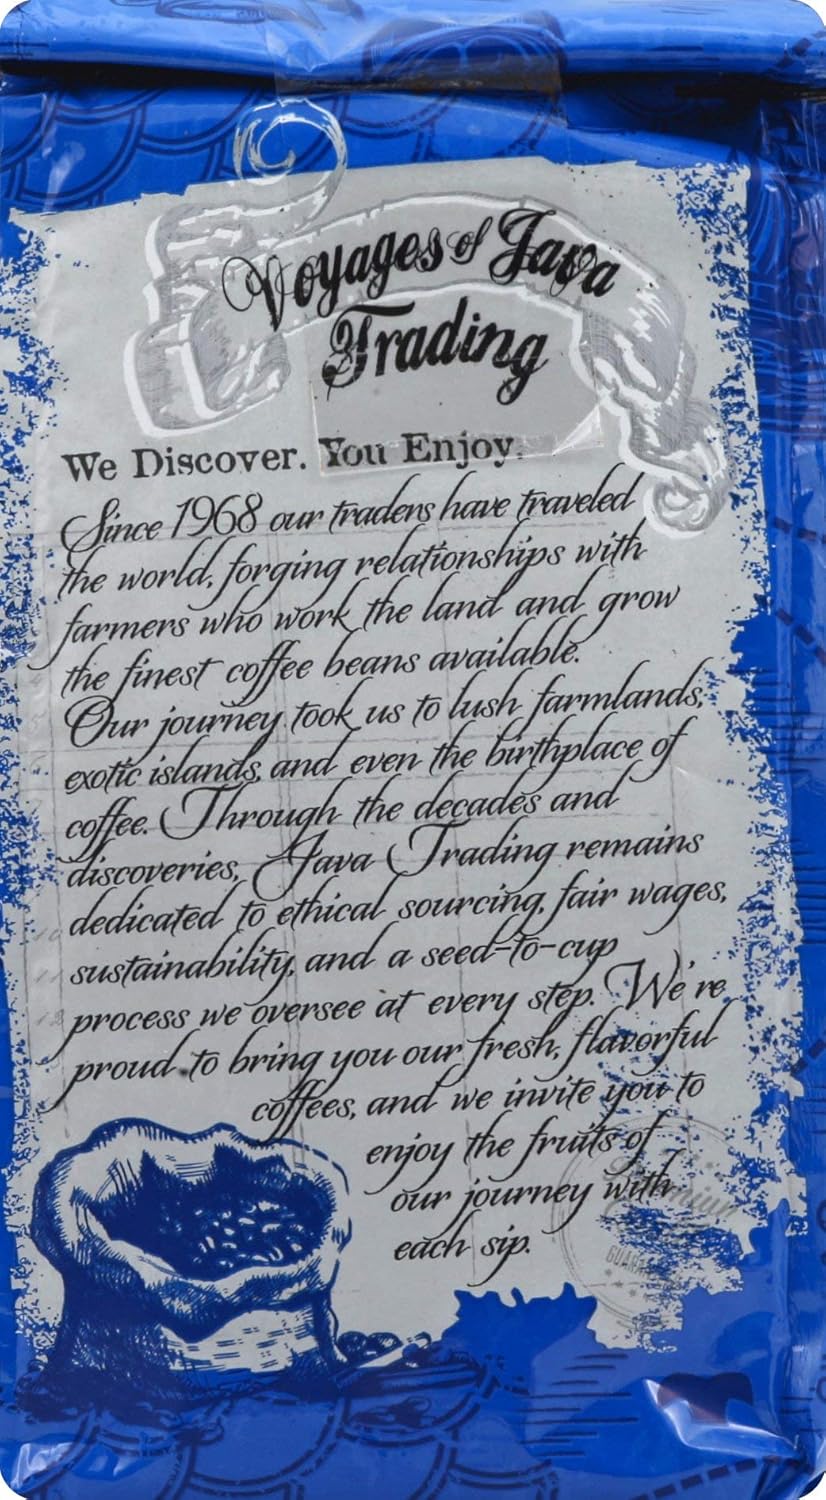 Voyages of Java
Trading
We Discover. You Enjoy.
Since 1968 our traders have traveled
the world, forging relationships with
farmers who work the land and grow
the finest coffee beans available.
Our journey took us to lush farmlands,
exotic islands, and even the birthplace of
coffee. Through the decades and
discoveries, Java Trading remains
dedicated to ethical sourcing, fair wages,
sustainability, and a seed-to-cup
process we oversee at every step. We're
proud to bring you our fresh, flavorful
coffees, and we invite you to
enjoy the fruits of
our journey with
each sip.
10
11
12